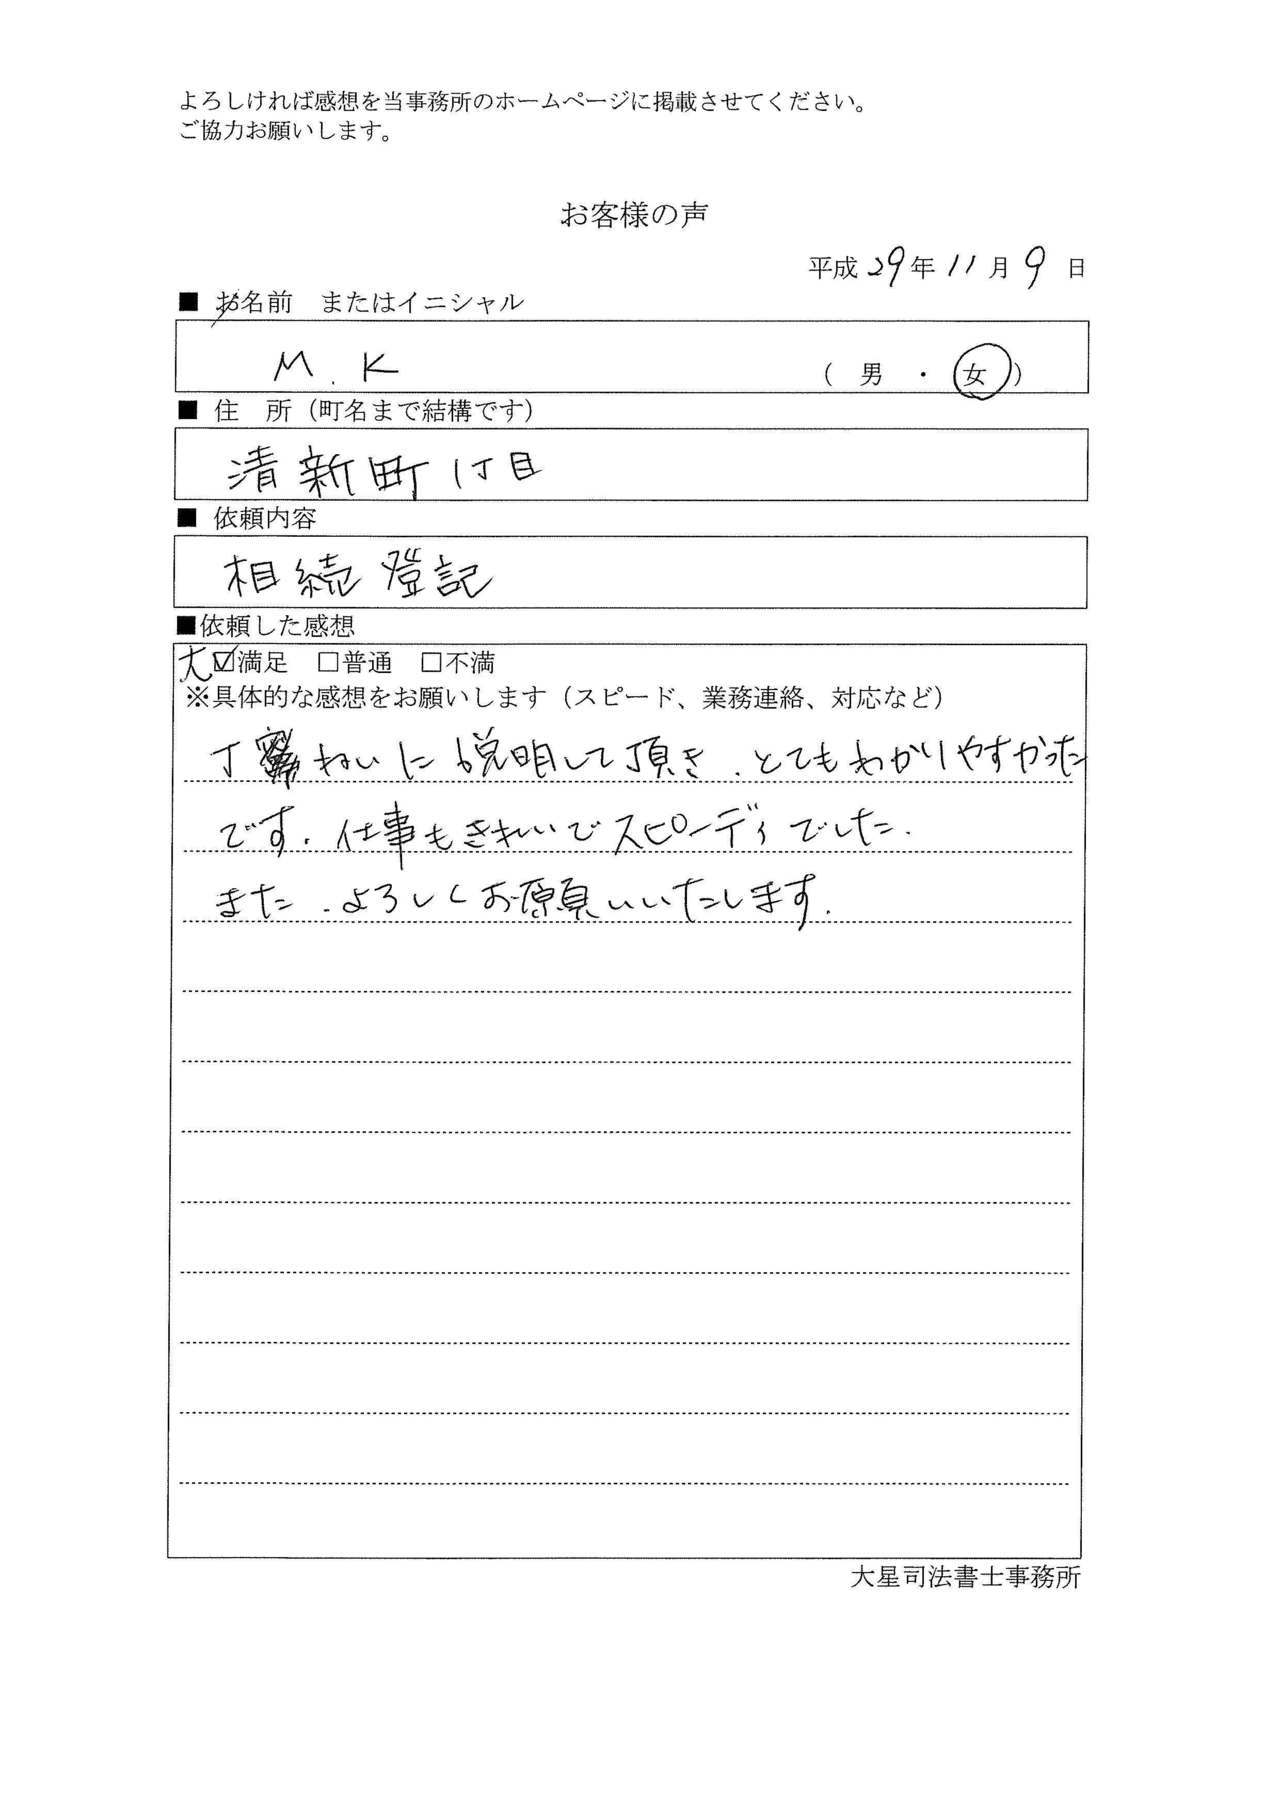 よろしければ感想を当事務所のホームページに掲載させてください。
ご協力お願いします。
お客様の声
平成 29年 11月 9日
■ お名前　またはイニシャル
M.K （ 男 ・ 女 ）
■ 住　所（町名まで結構です）
清新町1丁目
■ 依頼内容
相続登記
■依頼した感想
大☑満足　□普通　□不満
※具体的な感想をお願いします（スピード、業務連絡、対応など）
丁ねいに説明して頂き、とてもわかりやすかった
です。仕事もきれいでスピーディでした。
また、よろしくお願いいたします。
大星司法書士事務所